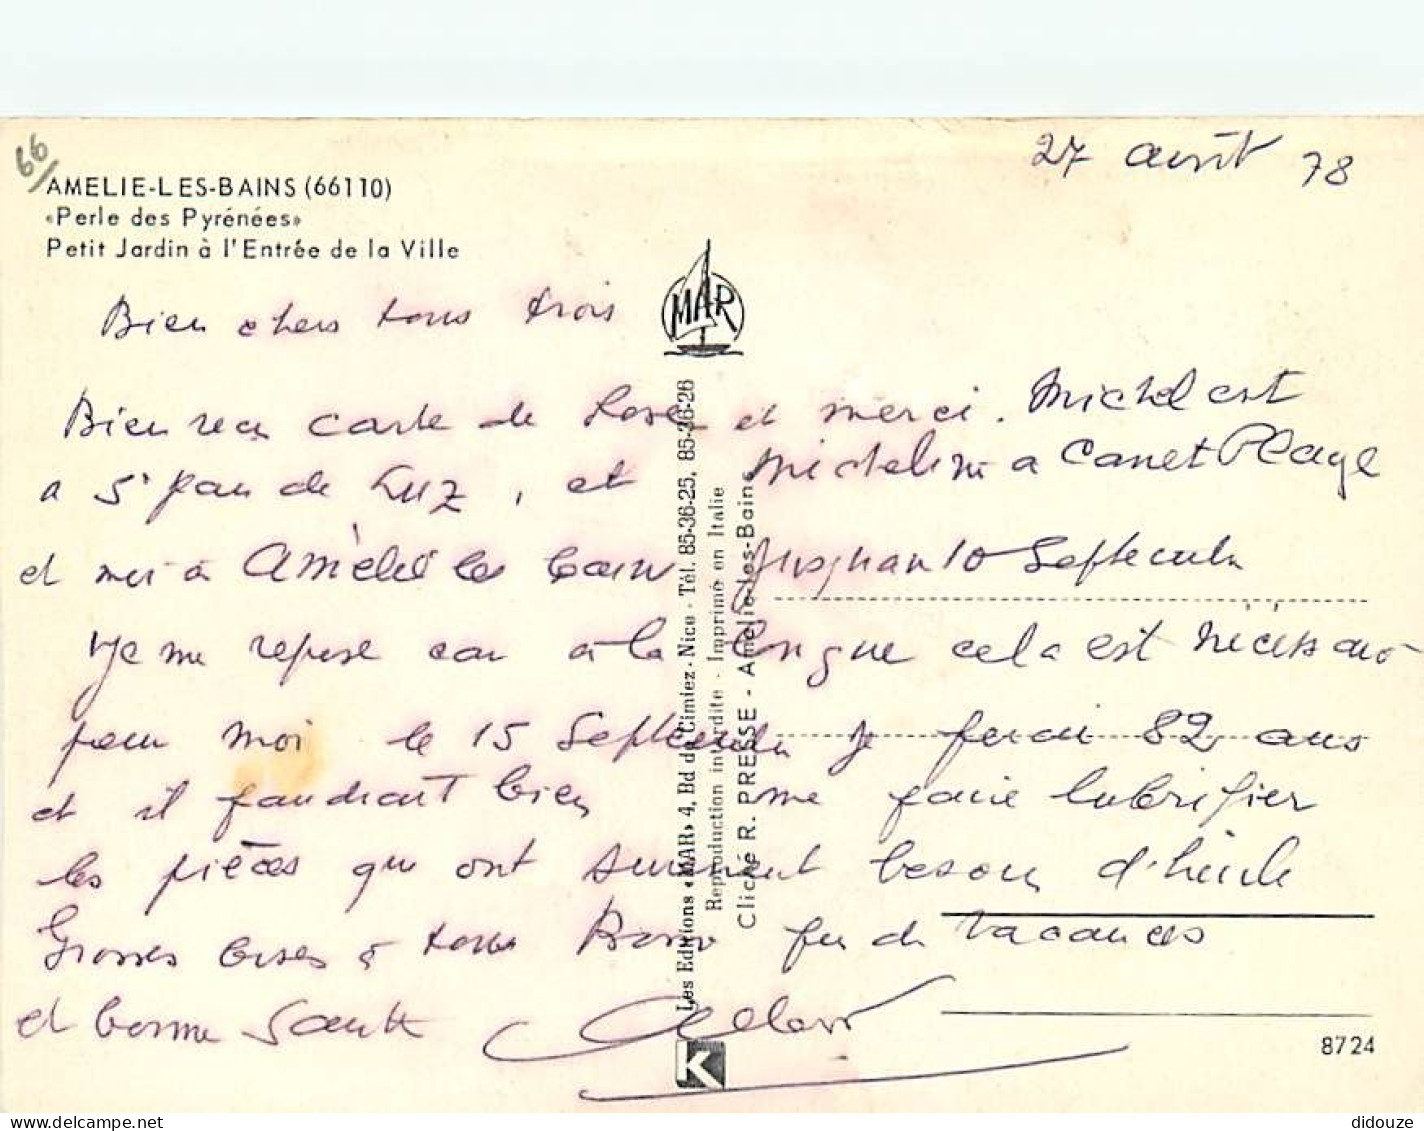 66
27 août 78
AMELIE-LES-BAINS (66110)
«Perle des Pyrénées»
Petit Jardin à l'Entrée de la Ville
MAR
Bien chers tous trois
Bien reçu carte de et merci. Michel est
a St Jean de Luz, et Micheline a Canet Plage
et moi à Amélie les bains jusqu'au 10 Septembre
Je me repose car à la longue cela est nécessaire
pour moi le 15 Septembre je ferai 82 ans
et il faudrait bien me faire lubrifier
les pièces qui ont surement besoin d'huile
Grosses bises à tous Bonne fin de vacances
et bonne Santé
Les Editions «MAR» 4, Bd du Cimiez - Nice - Tél. 85-36-25, 85-36-26
Reproduction interdite - Imprimé en Italie
Cliché R. PRESSE - Amélie-les-Bains
K
8724
delcampe.net
didouze